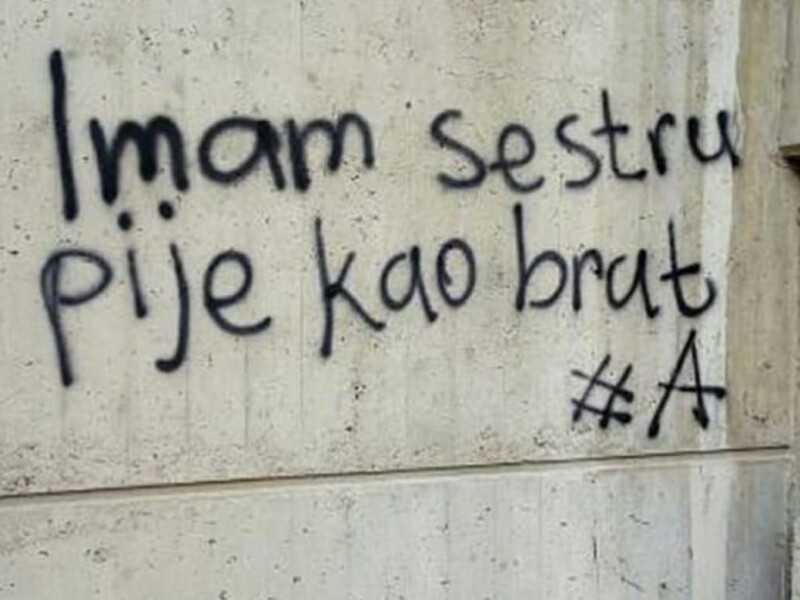 Imam sestru
pije kao brat
#A